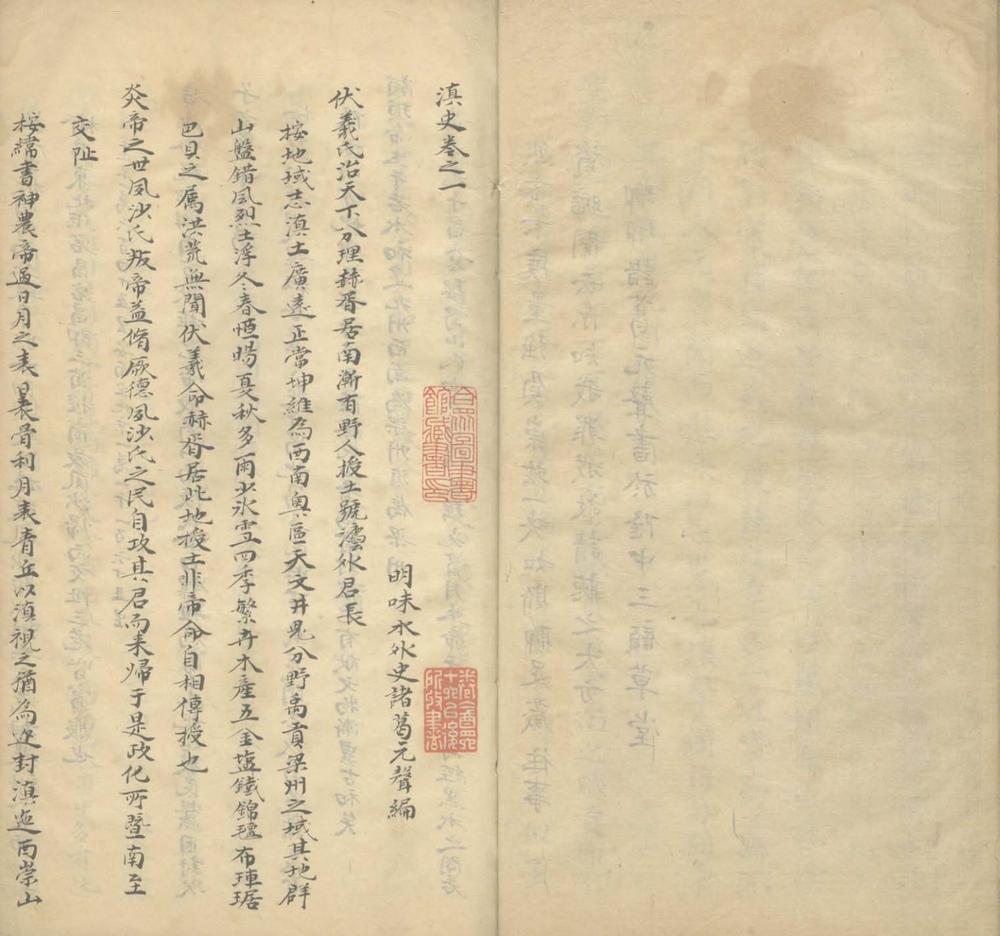 滇史卷之一
明味水外史諸葛元聲編
伏羲氏治天下分理赫胥居南漸有野人授土號君長
按地域志滇土廣遠正當坤維為西南奧區天文井鬼分野禹貢梁州之域其地群
山盤錯風烈土浮冬春恒暘夏秋多雨少氷雪四季繁卉木產五金塩鐵錦氊布琲琚
巴貝之属洪荒無聞伏羲命赫胥居此地授土非帝命自相傳授也
炎帝之世夙沙氏叛帝益脩厥德夙沙氏之民自攻其君而来歸于是政化所暨南至
交阯
按緯書神農帝過日月之表骨利月表青丘以滇視之猶為迩封滇迤西崇山